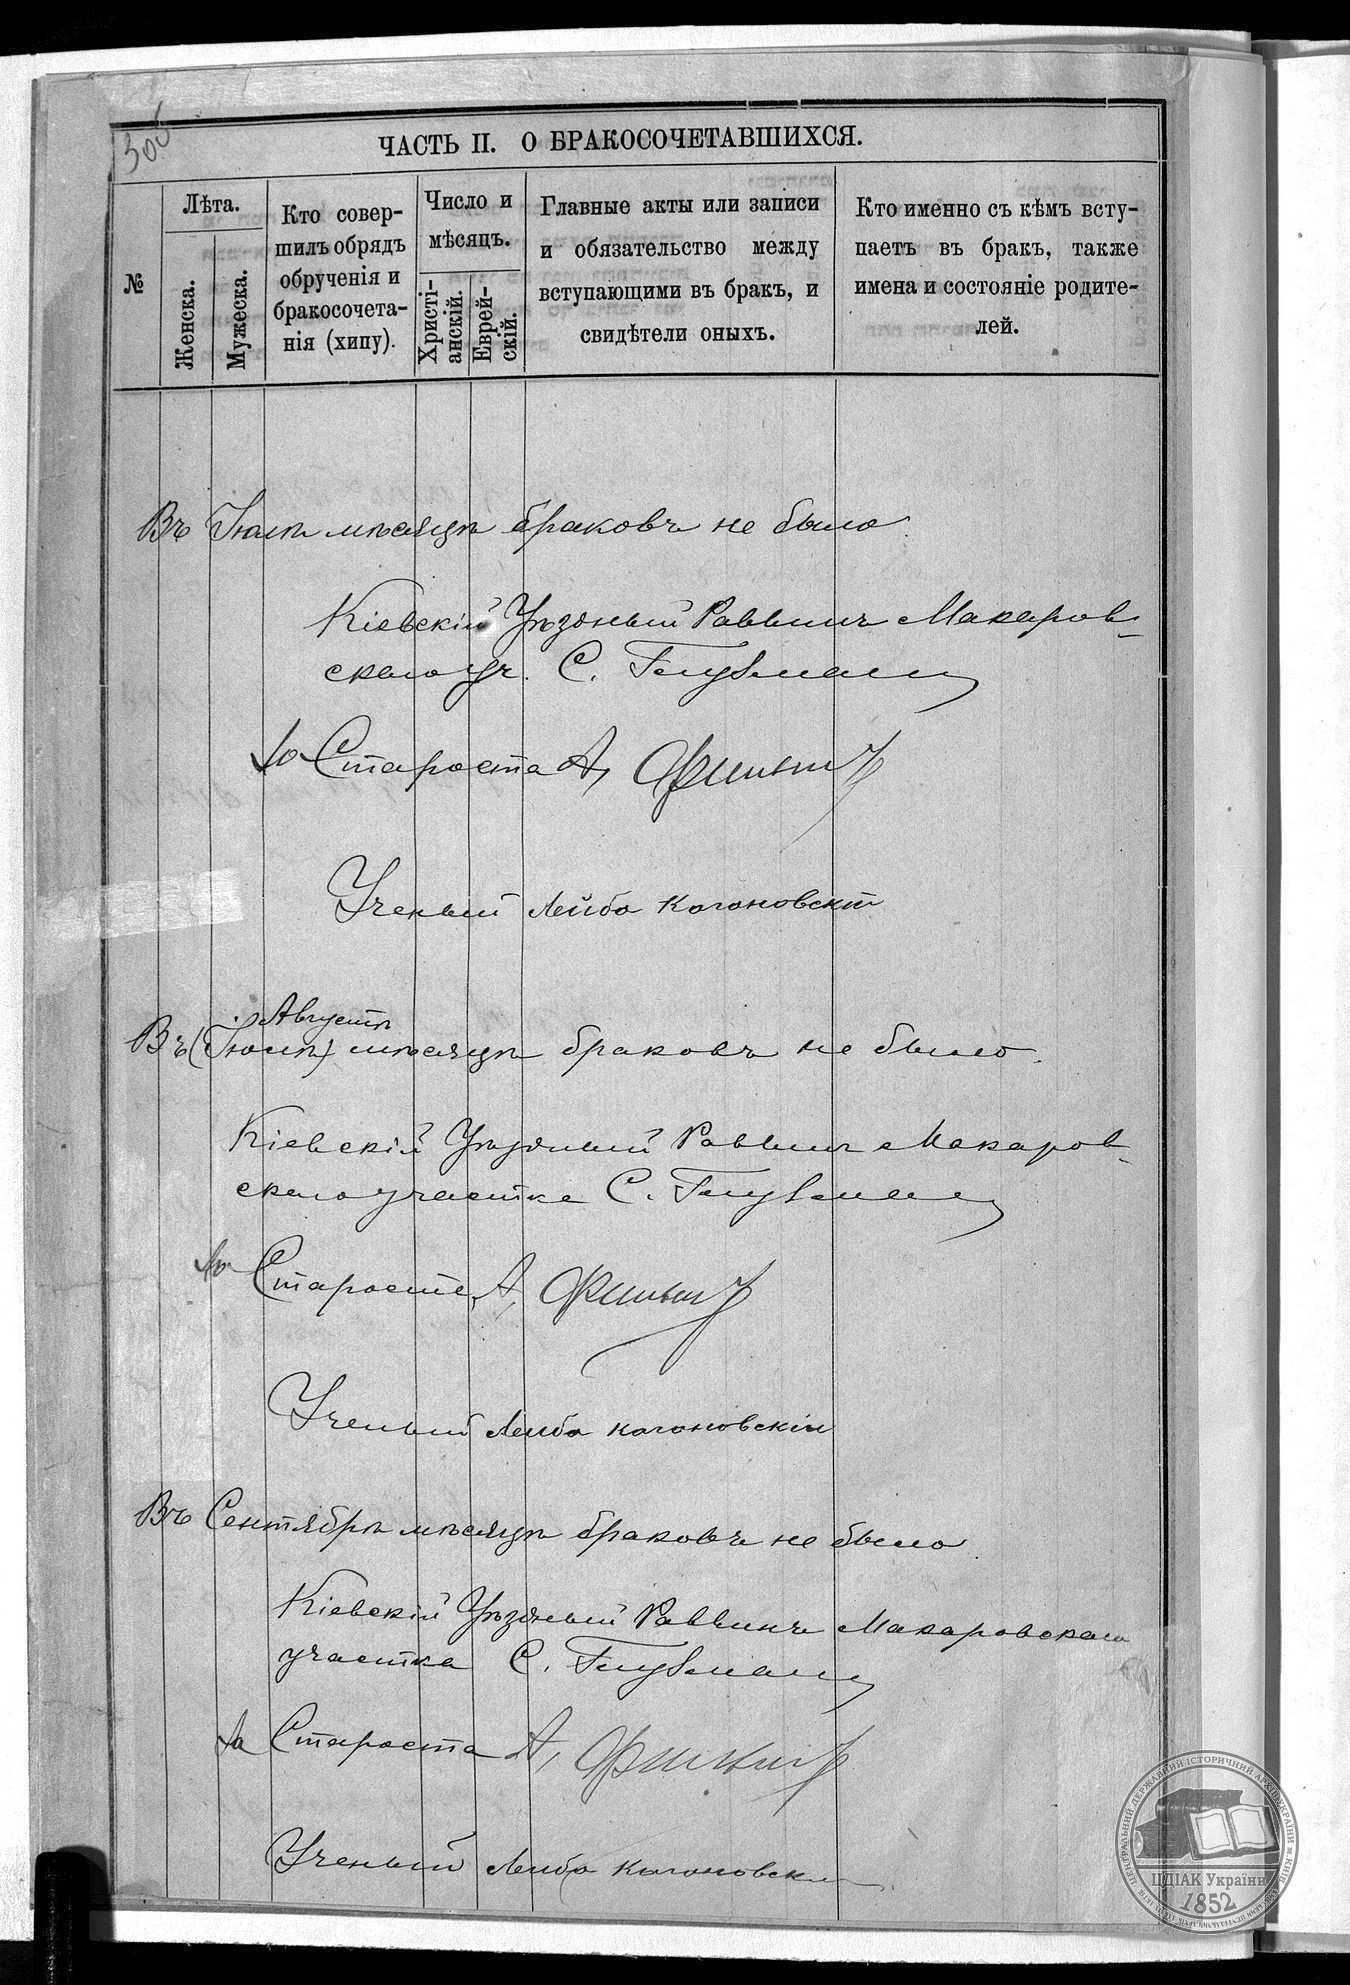 ЧАСТЬ II. О БРАКОСОЧЕТАВШИХСЯ.
№
Лѣта.
Женска.
Мужеска.
Кто совер-
шилъ обрядъ
обрученія и
бракосочета-
нія (хипу).
Число и
мѣсяцъ.
Христі-
анскій.
Еврей-
скій.
Главные акты или записи
и обязательство между
вступающими въ бракъ, и
свидѣтели оныхъ.
Кто именно съ кѣмъ всту-
паетъ въ бракъ, также
имена и состояніе родите-
лей.
Въ Іюлѣ мѣсяцѣ браковъ не было
Кіевскій Уѣздный Раввинъ Макаров-
скаго уч. С.
Староста А,
Ученый Лейба Когановскій
Августѣ
Въ (Іюлѣ) мѣсяцѣ браковъ не было
Кіевскій Уѣздный Раввинъ Макаров-
скаго участка С.
Староста А,
Ученый Лейба Когановскій
Въ Сентябрѣ мѣсяцѣ браковъ не было
Кіевскій Уѣздный Раввинъ Макаровскаго
участка С.
Староста А,
Ученый Лейба
ЦЕНТРАЛЬНИЙ ДЕРЖАВНИЙ ІСТОРИЧНИЙ АРХІВ УКРАЇНИ м. КИЇВ
ЦДІАК України
1852